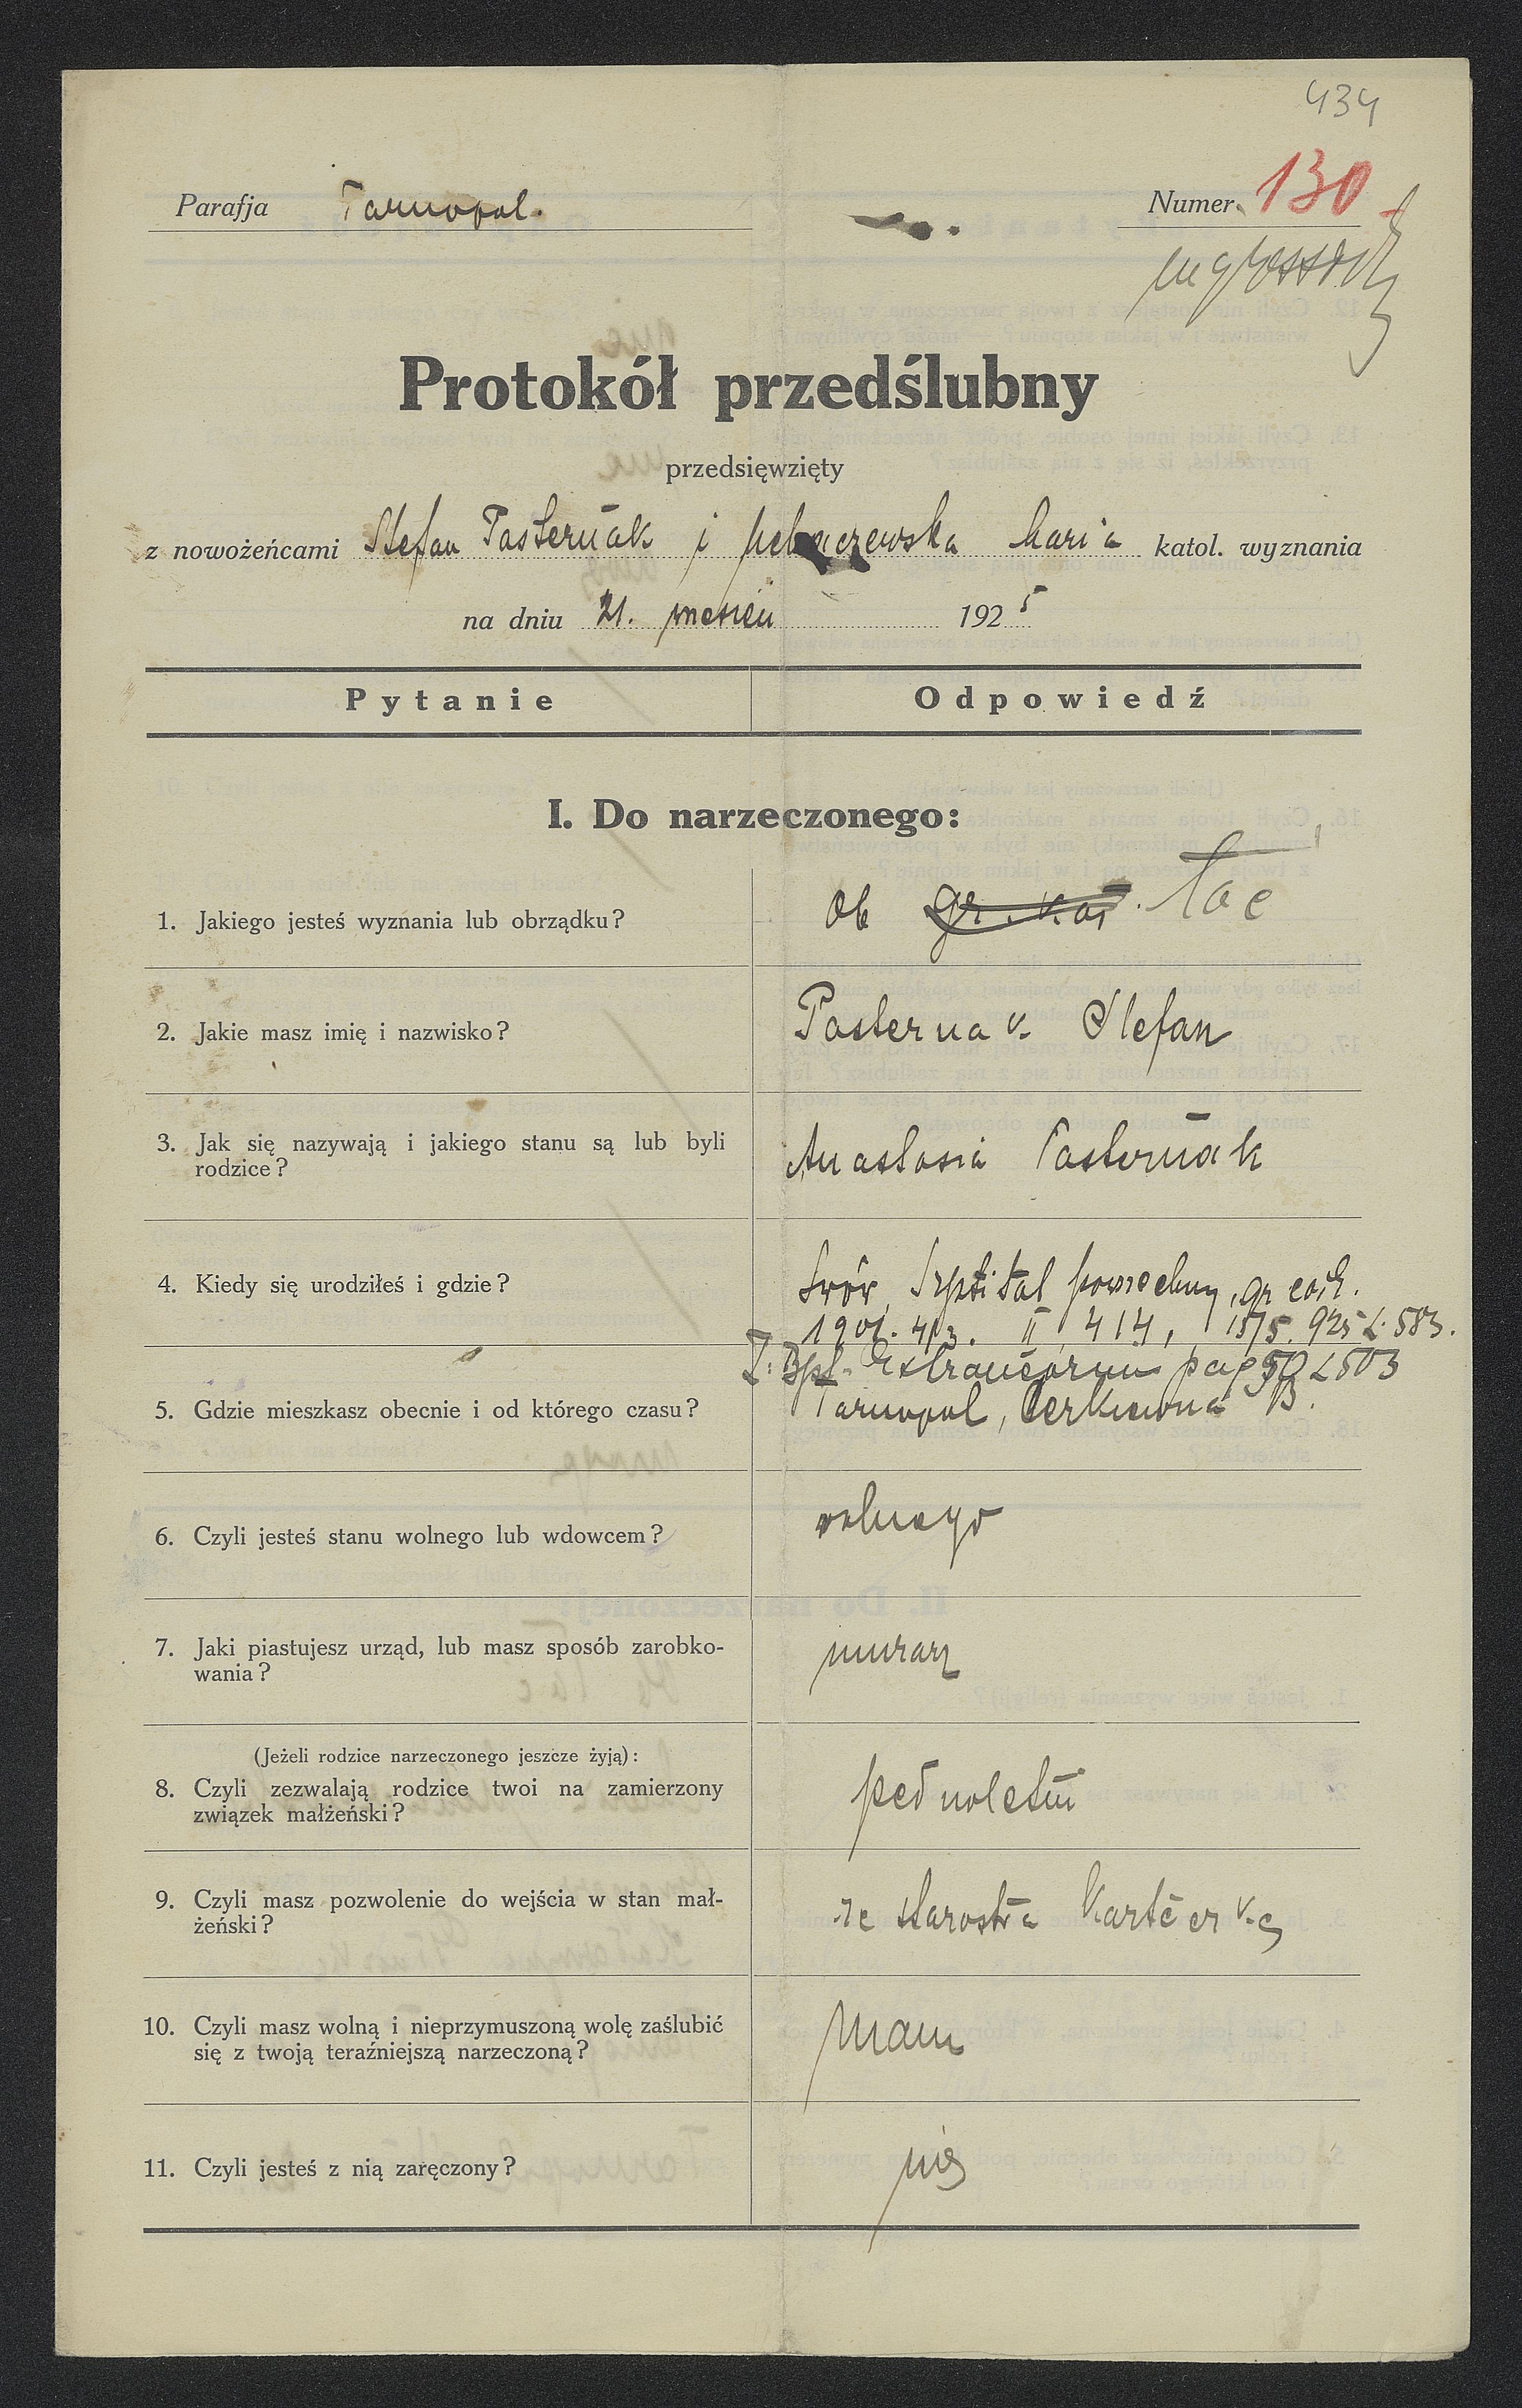 434
Parafja Tarnopol.
Numer 130
Protokół przedślubny
przedsięwzięty
z nowożeńcami Stefan Pasternak i Maria katol. wyznania
na dniu 21. 1925
Pytanie Odpowiedź
I. Do narzeczonego:
1. Jakiego jesteś wyznania lub obrządku? ob gr. kat. łac
2. Jakie masz imię i nazwisko? Pasternak Stefan
3. Jak się nazywają i jakiego stanu są lub byli
rodzice? Anastasia Pasternak
4. Kiedy się urodziłeś i gdzie? Lwów, Szpital powszechny, gr
1901. 4/3. II 414, 15/5. 925 L. 583.
pag 50 L 503
5. Gdzie mieszkasz obecnie i od którego czasu? Tarnopol,
6. Czyli jesteś stanu wolnego lub wdowcem? wolnego
7. Jaki piastujesz urząd, lub masz sposób zarobko-
wania? murarz
(Jeżeli rodzice narzeczonego jeszcze żyją):
8. Czyli zezwalają rodzice twoi na zamierzony
związek małżeński? pełnoletni
9. Czyli masz pozwolenie do wejścia w stan mał-
żeński? ze starostwa
10. Czyli masz wolną i nieprzymuszoną wolę zaślubić
się z twoją teraźniejszą narzeczoną? mam
11. Czyli jesteś z nią zaręczony? nie